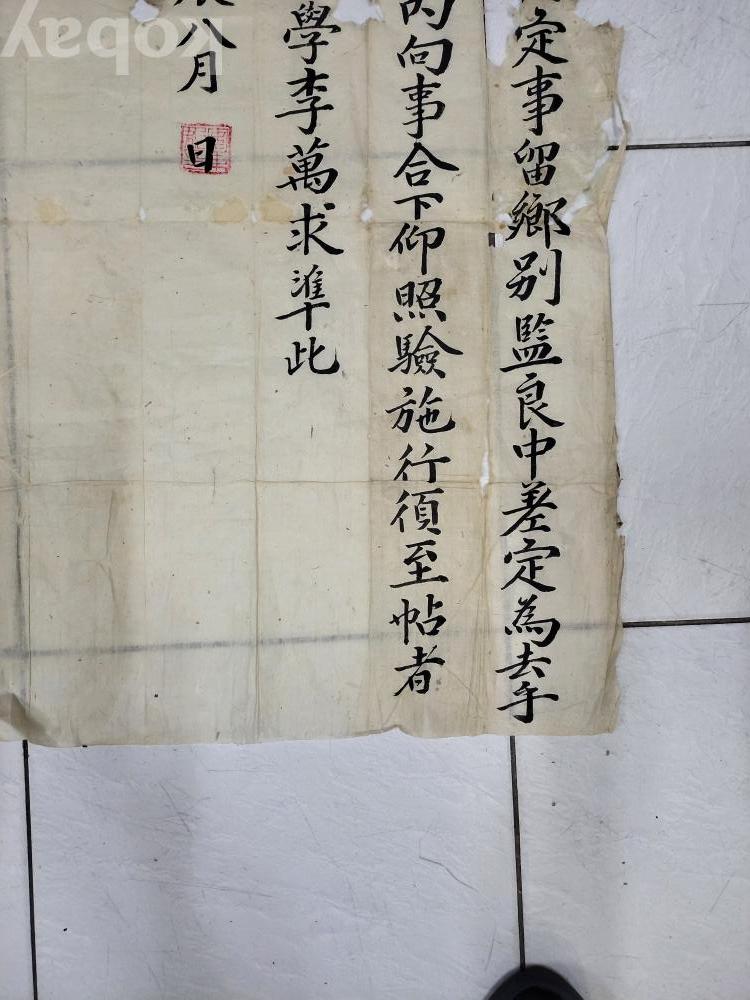 定事留鄕別監良中差定爲去乎
內向事合下仰照驗施行須至帖者
學李萬求準此
辰八月 日
kobay